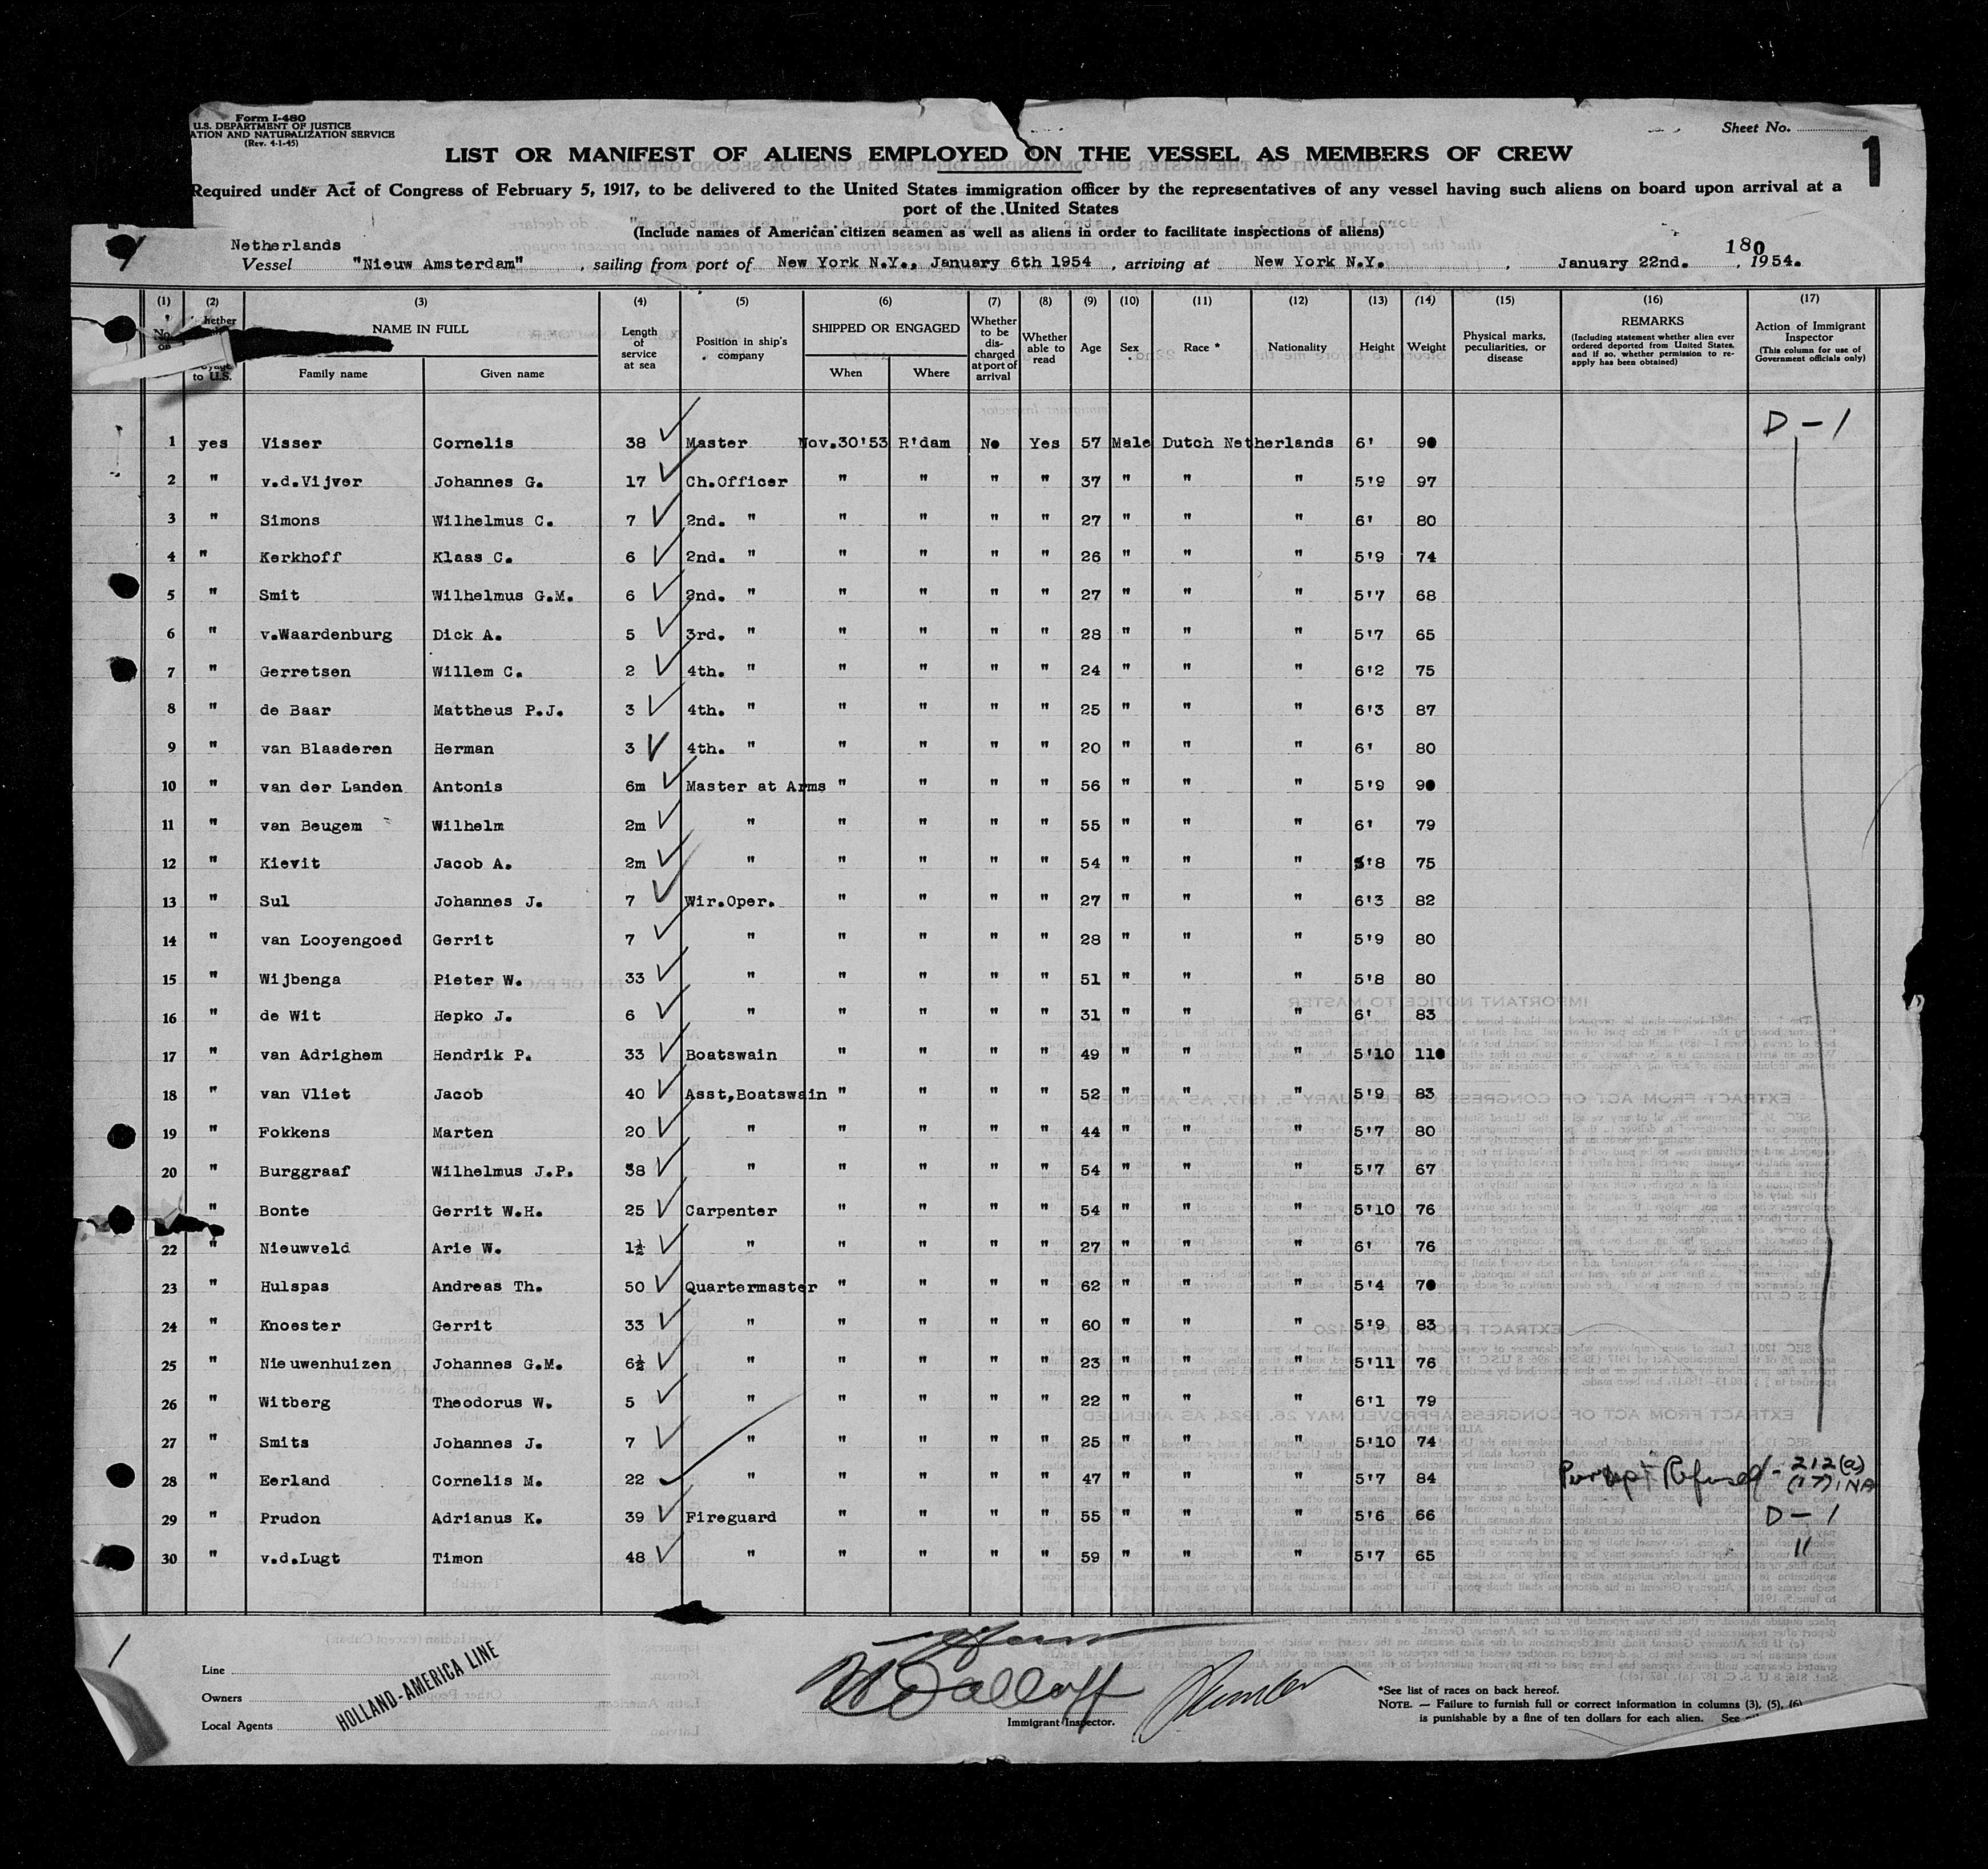 Form I-480
U.S. DEPARTMENT OF JUSTICE
ATION AND NATURALIZATION SERVICE
(Rev. 4-1-45)
Sheet No.
1
LIST OR MANIFEST OF ALIENS EMPLOYED ON THE VESSEL AS MEMBERS OF CREW
Required under Act of Congress of February 5, 1917, to be delivered to the United States immigration officer by the representatives of any vessel having such aliens on board upon arrival at a
port of the United States
(Include names of American citizen seamen as well as aliens in order to facilitate inspections of aliens)
Netherlands
180
Vessel "Nieuw Amsterdam", sailing from port of New York N.Y., January 6th 1954, arriving at New York N.Y., January 22nd., 1954.
(1) (2) (3) (4) (5) (6) (7) (8) (9) (10) (11) (12) (13) (14) (15) (16) (17)
No. on
hether
to U.S.
NAME IN FULL
Family name Given name
Length of service at sea
Position in ship's company
SHIPPED OR ENGAGED
When Where
Whether to be discharged at port of arrival
Whether able to read
Age
Sex
Race *
Nationality
Height
Weight
Physical marks, peculiarities, or disease
REMARKS
(Including statement whether alien ever ordered deported from United States, and if so, whether permission to re-apply has been obtained)
Action of Immigrant Inspector
(This column for use of Government officials only)
D - 1
1 yes Visser Cornelis 38 Master Nov.30'53 R'dam No Yes 57 Male Dutch Netherlands 6' 90
2 " v.d.Vijver Johannes G. 17 Ch.Officer " " " " 37 " " " 5'9 97
3 " Simons Wilhelmus C. 7 2nd. " " " " " 27 " " " 6' 80
4 " Kerkhoff Klaas C. 6 2nd. " " " " " 26 " " " 5'9 74
5 " Smit Wilhelmus G.M. 6 2nd. " " " " " 27 " " " 5'7 68
6 " v.Waardenburg Dick A. 5 3rd. " " " " " 28 " " " 5'7 65
7 " Gerretsen Willem C. 2 4th. " " " " " 24 " " " 6'2 75
8 " de Baar Mattheus P.J. 3 4th. " " " " " 25 " " " 6'3 87
9 " van Blaaderen Herman 3 4th. " " " " " 20 " " " 6' 80
10 " van der Landen Antonis 6m Master at Arms " " " " 56 " " " 5'9 90
11 " van Beugem Wilhelm 2m " " " " " 55 " " " 6' 79
12 " Kievit Jacob A. 2m " " " " " 54 " " " 5'8 75
13 " Sul Johannes J. 7 Wir.Oper. " " " " 27 " " " 6'3 82
14 " van Looyengoed Gerrit 7 " " " " " 28 " " " 5'9 80
15 " Wijbenga Pieter W. 33 " " " " " 51 " " " 5'8 80
16 " de Wit Hepko J. 6 " " " " " 31 " " " 6' 83
17 " van Adrighem Hendrik P. 33 Boatswain " " " " 49 " " " 5'10 110
18 " van Vliet Jacob 40 Asst,Boatswain " " " " 52 " " " 5'9 83
19 " Fokkens Marten 20 " " " " " 44 " " " 5'7 80
20 " Burggraaf Wilhelmus J.P. 38 " " " " " 54 " " " 5'7 67
" Bonte Gerrit W.H. 25 Carpenter " " " " 54 " " " 5'10 76
22 " Nieuwveld Arie W. 1½ " " " " " 27 " " " 6' 76
23 " Hulspas Andreas Th. 50 Quartermaster " " " " 62 " " " 5'4 70
24 " Knoester Gerrit 33 " " " " " 60 " " " 5'9 83
25 " Nieuwenhuizen Johannes G.M. 6½ " " " " " 23 " " " 5'11 76
26 " Witberg Theodorus W. 5 " " " " " 22 " " " 6'1 79
27 " Smits Johannes J. 7 " " " " " 25 " " " 5'10 74
28 " Eerland Cornelis M. 22 " " " " " 47 " " " 5'7 84 Refused - 212(a) (17) INA
29 " Prudon Adrianus K. 39 Fireguard " " " " 55 " " " 5'6 66 D - 1
30 " v.d.Lugt Timon 48 " " " " " 59 " " " 5'7 65 "
1
Line
Owners
Local Agents
HOLLAND-AMERICA LINE
Immigrant Inspector.
*See list of races on back hereof.
NOTE. — Failure to furnish full or correct information in columns (3), (5), (6)
is punishable by a fine of ten dollars for each alien. See